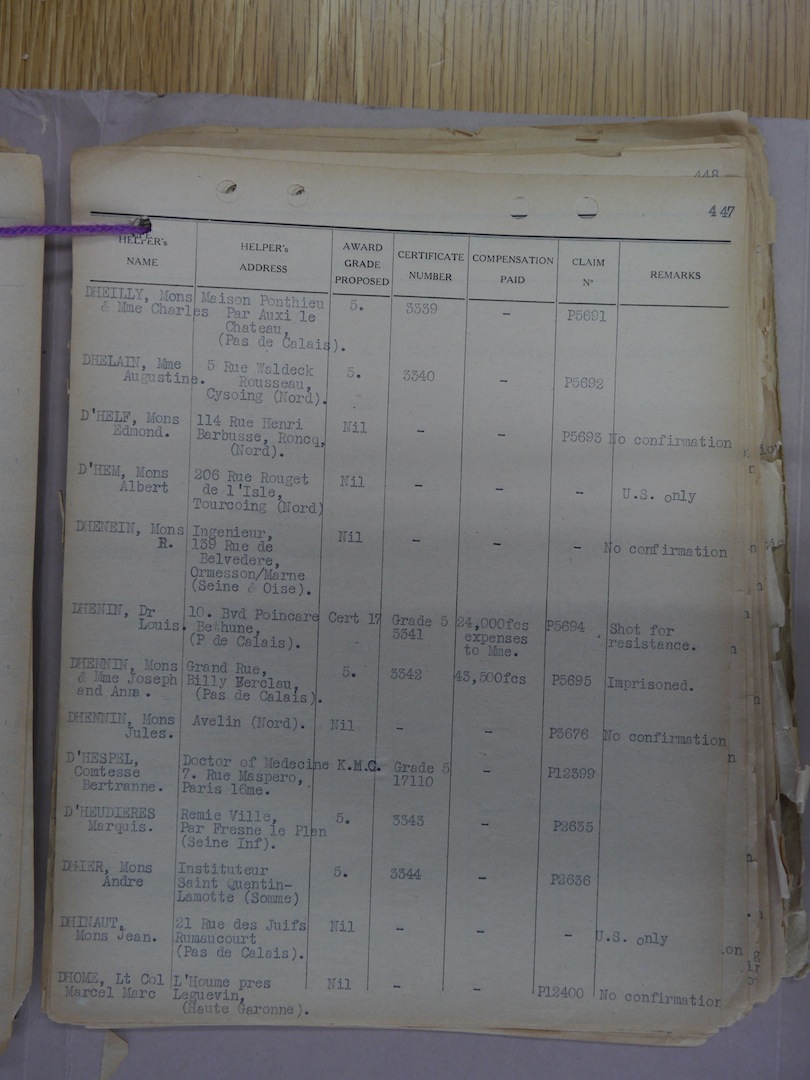 448
447
HELPER's NAME | HELPER's ADDRESS | AWARD GRADE PROPOSED | CERTIFICATE NUMBER | COMPENSATION PAID | CLAIM N° | REMARKS
DHEILLY, Mons | Maison Ponthieu | 5. | 3339 | - | P5691
& Mme Charles | Par Auxi le
Chateau,
(Pas de Calais).
DHELAIN, Mme | 5 Rue Waldeck | 5. | 3340 | - | P5692
Augustine. | Rousseau,
Cysoing (Nord).
D'HELF, Mons | 114 Rue Henri | Nil | - | - | P5693 | No confirmation
Edmond. | Barbusse, Roncq,
(Nord).
D'HEM, Mons | 206 Rue Rouget | Nil | - | - | - | U.S. only
Albert | de l'Isle,
Tourcoing (Nord)
DHENEIN, Mons | Ingenieur, | Nil | - | - | - | No confirmation
R. | 139 Rue de
Belvedere,
Ormesson/Marne
(Seine & Oise).
DHENIN, Dr | 10. Bvd Poincare | Cert 17 | Grade 5 | 24,000fcs | P5694 | Shot for
Louis. | Bethune, | 3341 | expenses | resistance.
(P de Calais). | to Mme.
DHENNIN, Mons | Grand Rue, | 5. | 3342 | 43,500fcs | P5695 | Imprisoned.
& Mme Joseph | Billy Berclau,
and Anna . | (Pas de Calais).
DHENNIN, Mons | Avelin (Nord). | Nil | - | - | P3676 | No confirmation
Jules.
D'HESPEL, | Doctor of Medecine | K.M.C. | Grade 5 | - | P12399
Comtesse | 7. Rue Maspero, | 17110
Bertranne. | Paris 16me.
D'HEUDIERES | Remie Ville, | 5. | 3343 | - | P2635
Marquis. | Par Fresne le Plan
(Seine Inf).
DHIER, Mons | Instituteur | 5. | 3344 | - | P2636
Andre | Saint Quentin-
Lamotte (Somme)
DHINAUT, | 21 Rue des Juifs | Nil | - | - | - | U.S. only
Mons Jean. | Rumaucourt
(Pas de Calais).
DHOME, Lt Col | L'Houme pres | Nil | - | - | P12400 | No confirmation
Marcel Marc | Leguevin,
(Haute Garonne).